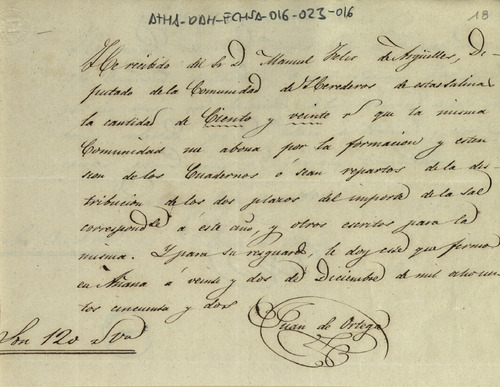 ATHA-DAH-FCHSA-016-023-016
18
He recibido del Sr. D. Manuel Velez de Argüelles, Di-
putado de la Comunidad de Herederos de estas Salinas
la cantidad de Ciento y veinte r.s que la misma
Comunidad me abona por la formacion y esten
sion de los Cuadernos ó sean repartos de la dis-
tribucion de los dos plazos del importe de la sal
correspond.te á éste año, y otros escritos para la
misma. Y para su resguardo, le doy este que firmo
en Añana á veinte y dos de Diciembre de mil ochocien
tos cincuenta y dos
Juan de Ortega
Son 120 r.s v.n